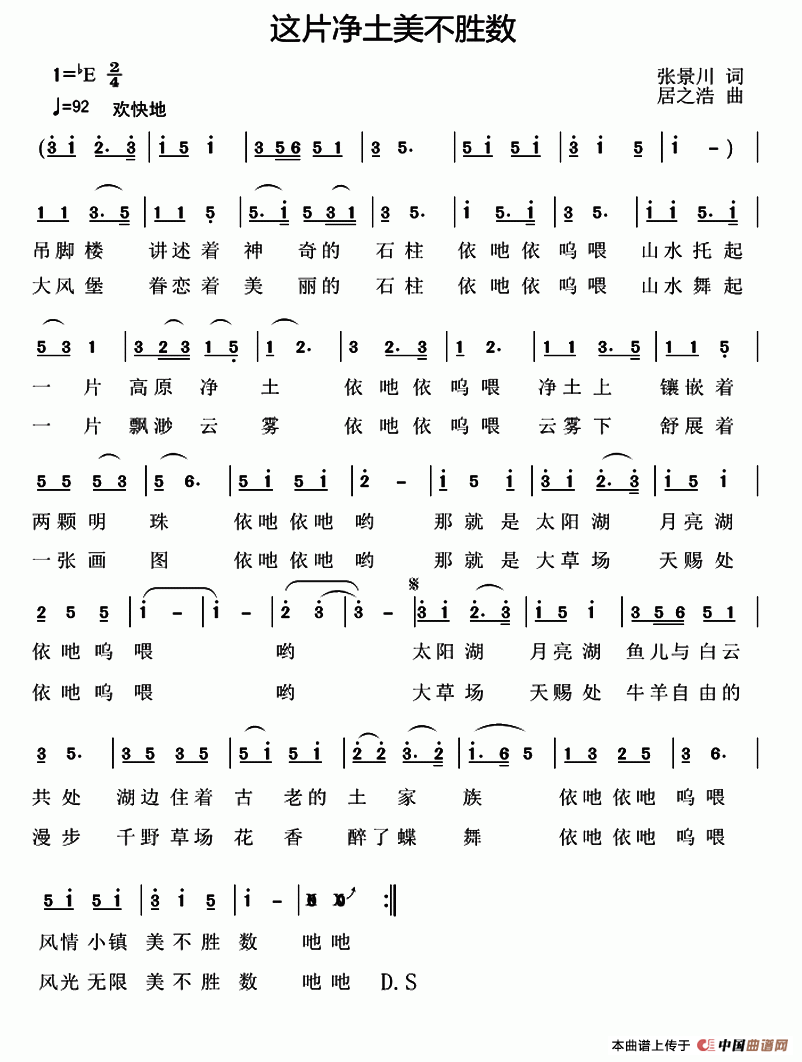 这片净土美不胜数
1=♭E 2/4
张景川 词
♩=92 欢快地
居之浩 曲
(3̇ 1̇ 2̇. 3̇ | 1̇ 5 1̇ | 3 5 6 5 1 | 3 5. | 5 1̇ 5 1̇ | 3̇ 1̇ 5 | 1̇ - ) |
1 1 3. 5̣ | 1 1 5̣ | 5. 1̇ 5 3 1 | 3 5. | 1̇ 5. 1̇ | 3 5. | 1̇ 1̇ 2̇. 5 |
吊脚楼 讲述着 神 奇的 石柱 依吔依呜喂 山水托起
大风堡 眷恋着 美 丽的 石柱 依吔依呜喂 山水舞起
5 3 1 | 3 2 3 1 5̣ | 1 2. | 3 2. 3 | 1 2. | 1 1 3. 5 | 1 1 5̣ |
一 片 高原 净 土 依吔依呜喂 净土上 镶嵌着
一 片 飘渺 云 雾 依吔依呜喂 云雾下 舒展着
5 5 5 3 | 5 6. | 5 1̇ 5 1̇ | 2̇ - | 1̇ 5 1̇ | 3̇ 1̇ 2̇. 3̇ | 1̇ 5 1̇ |
两颗明 珠 依吔依吔哟 那就是太阳湖 月亮湖
一张画 图 依吔依吔哟 那就是大草场 天赐处
2 5 5 | 1̇ - | 1̇ - | 2̇ 3̇ | 3̇ - | 𝄋 3̇ 1̇ 2̇. 3̇ | 1̇ 5 1̇ | 3 5 6 5 1 |
依吔呜喂 哟 太阳湖 月亮湖 鱼儿与白云
依吔呜喂 哟 大草场 天赐处 牛羊自由的
3 5. | 3 5 3 5 | 5 1̇ 5 1̇ | 2̇ 2̇ 3̇. 2̇ | 1̇. 6 5 | 1 3 2 5 | 3 6. |
共处 湖边住着 古 老的 土 家 族 依吔依吔 呜喂
漫步 千野草场 花 香 醉了蝶 舞 依吔依吔 呜喂
5 1̇ 5 1̇ | 3̇ 1̇ 5 | 1̇ - | X X :‖
风情小镇 美不胜 数 吔吔
风光无限 美不胜 数 吔吔 D.S
本曲谱上传于 中国曲谱网